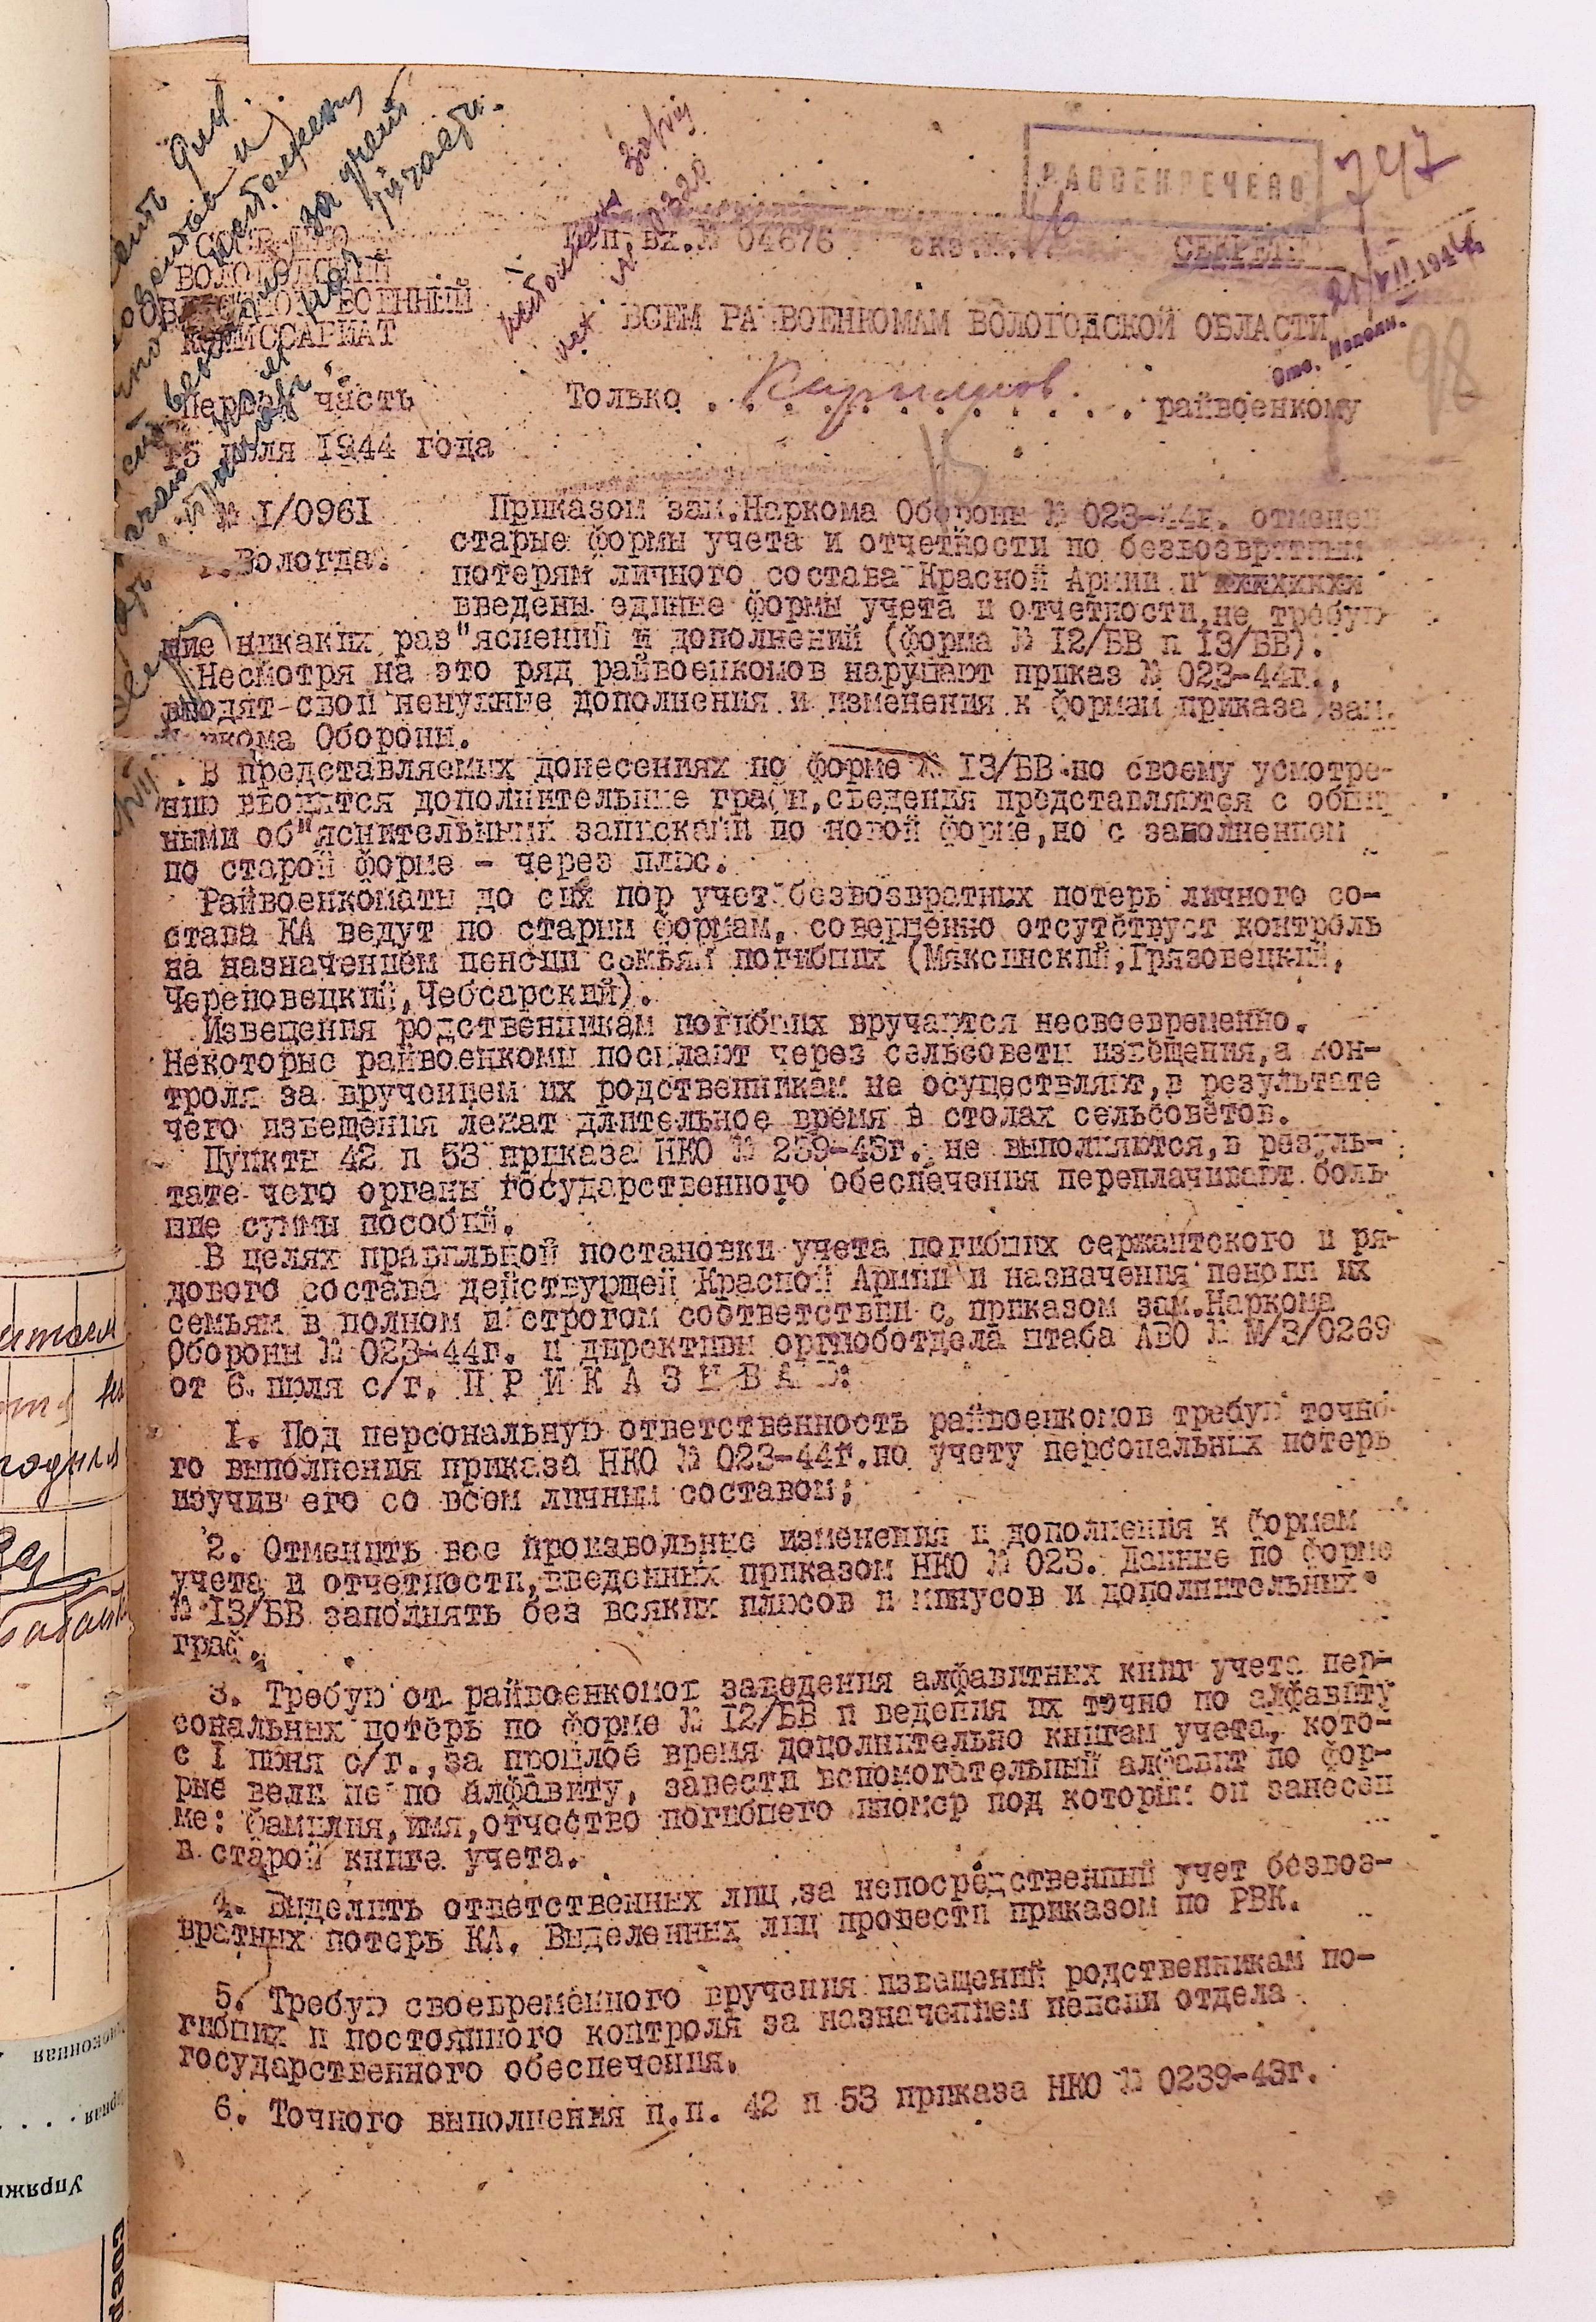 РАССЕКРЕЧЕНО
747
вх.№ 04676 экз.№
СЕКРЕТНО
ВОЛОГОДСКИЙ
ОБЛАСТНОЙ ВОЕННЫЙ
КОМИССАРИАТ
ВСЕМ РАЙВОЕНКОМАМ ВОЛОГОДСКОЙ ОБЛАСТИ
98
Первая часть
Только райвоенкому
15 июля 1944 года
№ I/0961
г.Вологда.
Приказом зам.Наркома Обороны № 023-44г. отменен
старые формы учета и отчетности по безвозвратным
потерям личного состава Красной Армии и
введены единые формы учета и отчетности,не требую
щие никаких раз"яснений и дополнений (форма № I2/БВ и I3/БВ).
Несмотря на это ряд райвоенкомов нарушают приказ № 023-44г.,
вводят свои ненужные дополнения и изменения к формам приказа зам.
Наркома Обороны.
В представляемых донесениях по форме № I3/БВ по своему усмотре-
нию вводятся дополнительные графы,сведения представляются с обшир
ными об"яснительными записками по новой форме,но с заполнением
по старой форме - через плюс.
Райвоенкоматы до сих пор учет безвозвратных потерь личного со-
става КА ведут по старым формам, совершенно отсутствует контроль
на назначением пенсии семьям погибших (Мяксинский,Грязовецкий,
Череповецкий,Чебсарский).
Извещения родственникам погибших вручаются несвоевременно.
Некоторые райвоенкомы посылают через сельсоветы извещения,а кон-
троля за вручением их родственникам не осуществляют,в результате
чего извещения лежат длительное время в столах сельсоветов.
Пункты 42 и 53 приказа НКО № 239-43г. не выполняются,в резуль-
тате чего органы государственного обеспечения переплачивают боль
шие суммы пособий.
В целях правильной постановки учета погибших сержантского и ря-
дового состава действующей Красной Армии и назначения пенсии их
семьям в полном и строгом соответствии с приказом зам.Наркома
Обороны № 023-44г. и директивы оргмоботдела штаба АВО № М/3/0269
от 6 июля с/г. П Р И К А З Ы В А Ю:
I. Под персональную ответственность райвоенкомов требую точно-
го выполнения приказа НКО № 023-44г.по учету персональных потерь
изучив его со всем личным составом;
2. Отменить все произвольные изменения и дополнения к формам
учета и отчетности,введенных приказом НКО № 023. Данные по форме
№ I3/БВ заполнять без всяких плюсов и минусов и дополнительных
граф.
3. Требую от райвоенкомов заведения алфавитных книг учета пер-
сональных потерь по форме № I2/БВ и ведения их точно по алфавиту
с I июня с/г.,за прошлое время дополнительно книгам учета, кото-
рые вели не по алфавиту, завести вспомогательный алфавит по фор-
ме: фамилия,имя,отчество погибшего иномер под которым он занесен
в старой книге учета.
4. Выделить ответственных лиц за непосредственный учет безвоз-
вратных потерь КА. Выделенных лиц провести приказом по РВК.
5. Требую своевременного вручения извещений родственникам по-
гибших и постоянного контроля за назначением пенсии отдела
государственного обеспечения.
6. Точного выполнения п.п. 42 и 53 приказа НКО № 0239-43г.